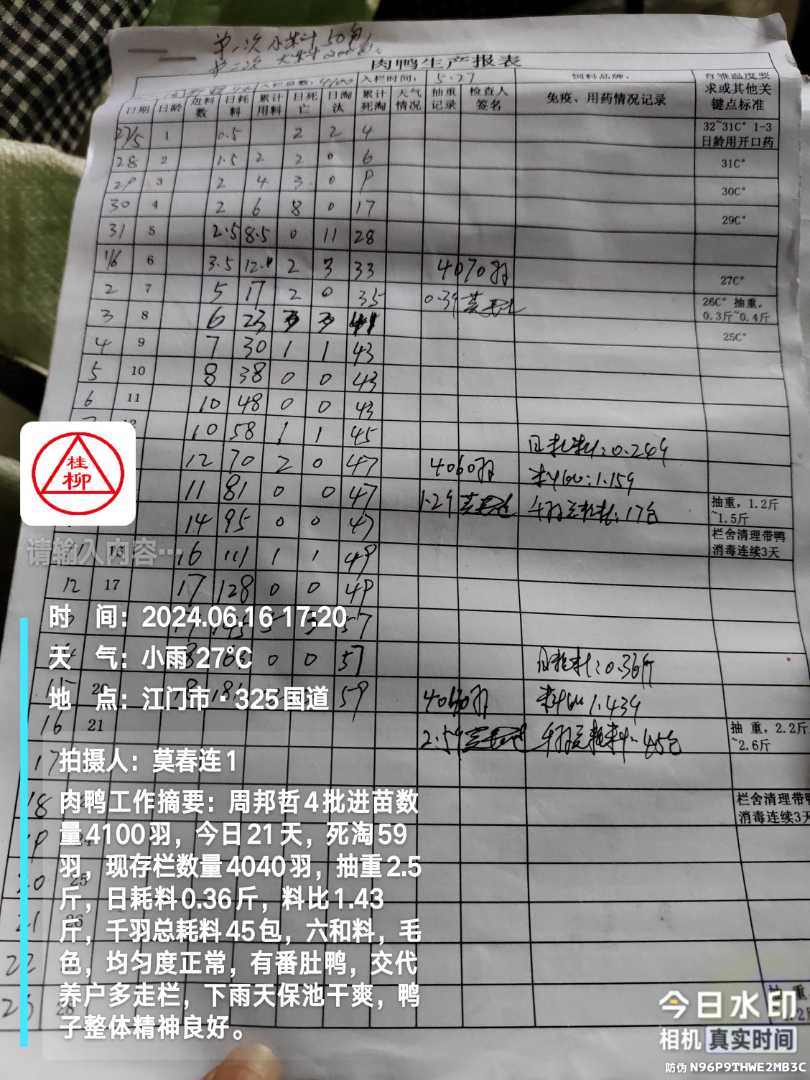 第一次小料50包
第二次大料
肉鸭生产报表
入栏时间: 5.27 饲料品牌:
日期 日龄 进料数 日耗料 累计用料 日死亡 日淘汰 累计死淘 天气情况 抽重记录 检查人签名 免疫、用药情况记录 求或其他关键点标准
27/5 1 0.5 2 2 4 32~31C° 1-3日龄用开口药
28 2 1.5 2 2 0 6 31C°
29 3 2 4 3 0 9 30C°
30 4 2 6 8 0 17 29C°
31 5 2.5 8.5 0 11 28
1/6 6 3.5 12.0 2 3 33 4070羽 27C°
2 7 5 17 2 0 35 0.39 莫春连 26C° 抽重,0.3斤~0.4斤
3 8 6 23 3 3 41 25C°
4 9 7 30 1 1 43
5 10 8 38 0 0 43
6 11 10 48 0 0 43
10 58 1 1 45 日耗料:0.249
12 70 2 0 47 4060羽 料比:1.159
11 81 0 0 47 1.29 莫春连 千羽总耗料:17包 抽重,1.2斤~1.5斤
14 95 0 0 47 栏舍清理带鸭消毒连续3天
16 111 1 1 49
12 17 17 128 0 0 49
57
0 0 57 日耗料:0.36斤
15 20 181 59 4040羽 料比1.439
16 21 2.59 莫春连 千羽总耗料45包 抽重,2.2斤~2.6斤
17
18 栏舍清理带鸭消毒连续3天
19
20
21
22
桂柳
请输入内容…
时 间:2024.06.16 17:20
天 气:小雨 27℃
地 点:江门市·325国道
拍摄人:莫春连1
肉鸭工作摘要:周邦哲4批进苗数
量4100羽,今日21天,死淘59
羽,现存栏数量4040羽,抽重2.5
斤,日耗料0.36斤,料比1.43
斤,千羽总耗料45包,六和料,毛
色,均匀度正常,有番肚鸭,交代
养户多走栏,下雨天保池干爽,鸭
子整体精神良好。
今日水印
相机 真实时间
防伪 N96P9THWE2MB3C